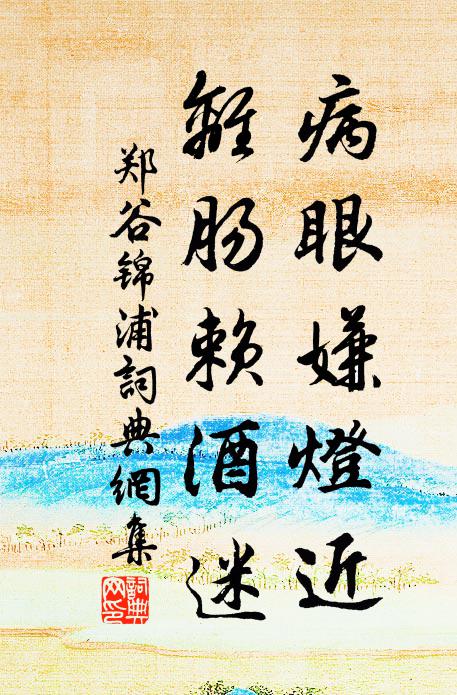 病眼嫌燈近
離肠赖酒迷
郑谷锦浦詞典網集
詞典